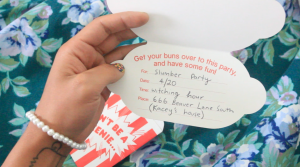 Get your buns over to this party,
and have some fun!
For: Slumber Party
Date: 4/20
Time: witching hour
Place: 666 Beaver Lane South
(Kacey's house)
T BE A